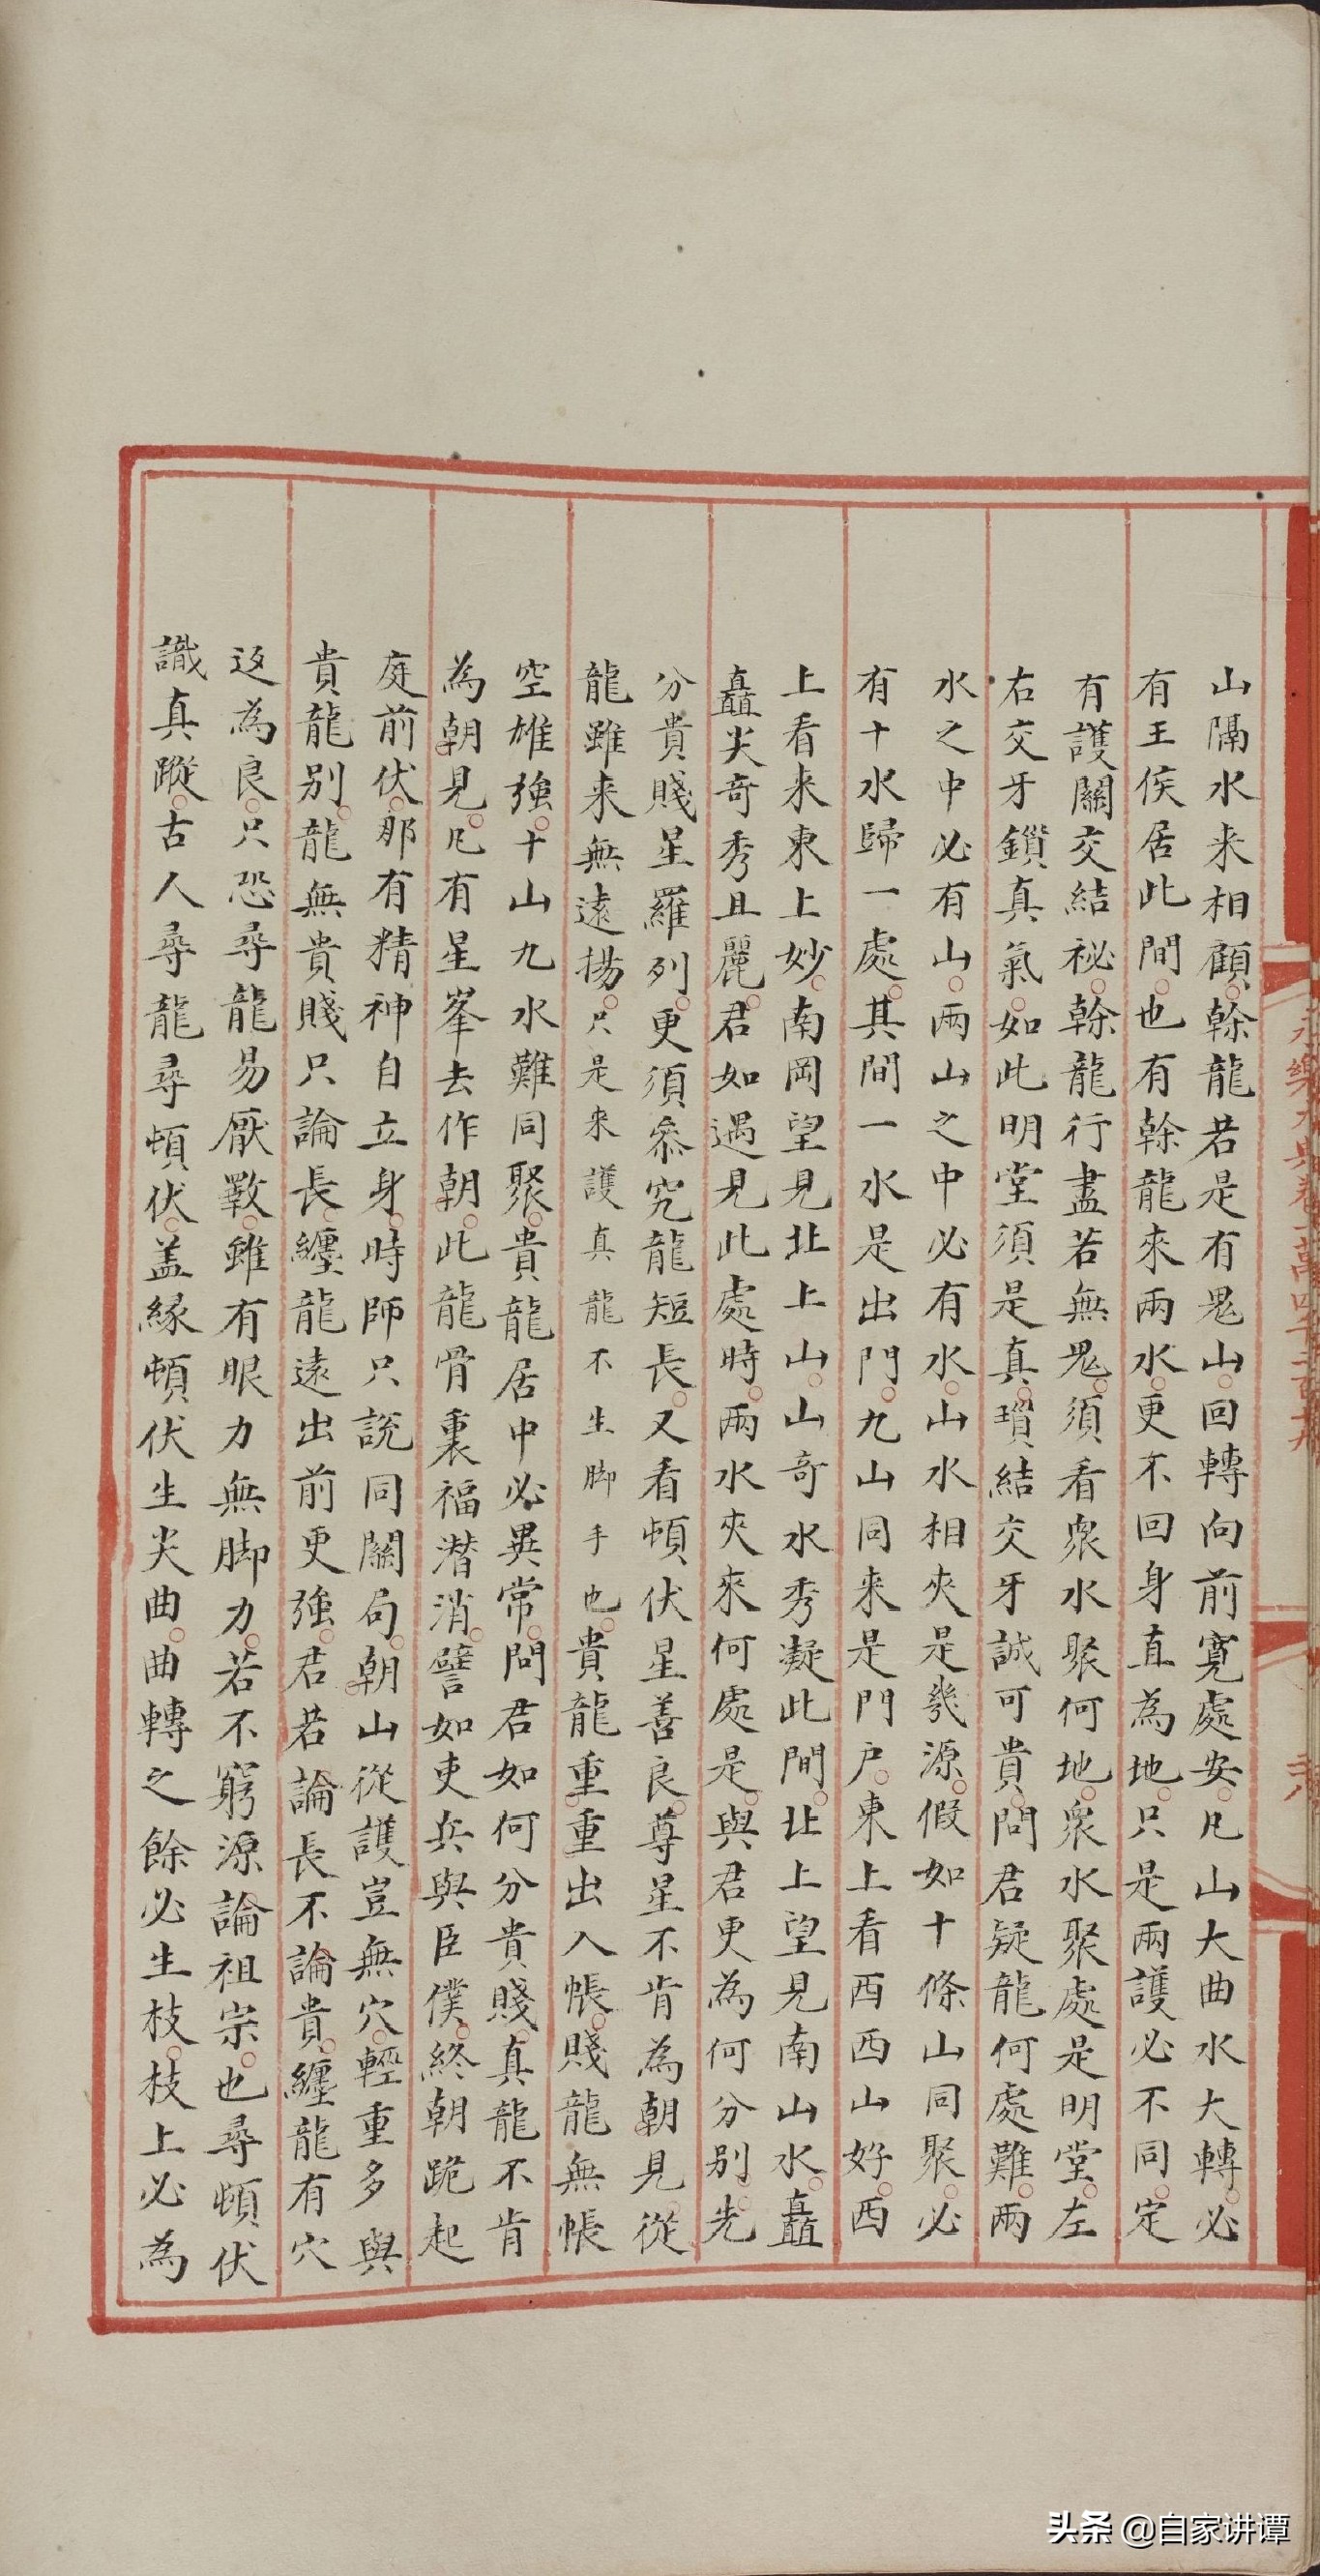 山隔水来相顧榦龍若是有鬼山回轉向前寬處安凡山大曲水大轉必
有王侯居此間也有榦龍來兩水更不回身直為地只是兩護必不同定
有護關交結祕榦龍行盡若無鬼須看衆水聚何地衆水聚處是明堂左
右交牙鎖真氣如此明堂須是真瑣結交牙誠可貴問君疑龍何處難兩
水之中必有山兩山之中必有水山水相夾是幾源假如十條山同聚必
有十水歸一處其間一水是出門九山同来是門户東上看西西山好西
上看来東上妙南岡望見北上山山奇水秀凝此間北上望見南山水矗
矗尖奇秀且麗君如遇見此處時兩水夾來何處是與君更為何分别先
分貴賤星羅列更須叅究龍短長又看頓伏星善良尊星不肯為朝見從
龍雖来無遠揚只是来護真龍不生脚手也貴龍重重出入帳賤龍無帳
空雄強十山九水難同聚貴龍居中必異常問君如何分貴賤真龍不肯
為朝見凡有星峯去作朝此龍骨裏福潛消譬如吏兵與臣僕終朝跪起
庭前伏那有精神自立身時師只說同關局朝山從護豈無穴輕重多與
貴龍别龍無貴賤只論長纏龍遠出前更強君若論長不論貴纏龍有穴
返為良只恐尋龍易厭斁雖有眼力無脚力若不窮源論祖宗也尋頓伏
識真蹤古人尋龍尋頓伏盖緣頓伏生尖曲曲轉之餘必生枝枝上必為
永樂大典卷一萬四千二百十九
头条 @自家讲谭